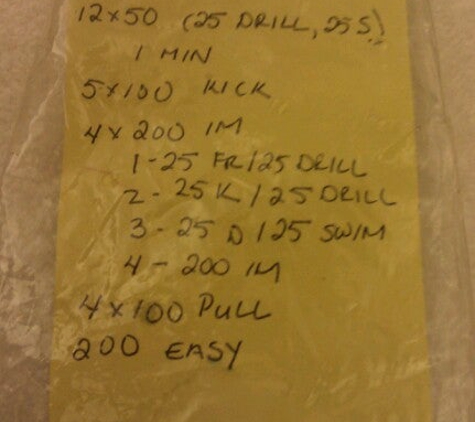 12x50 (25 DRILL, 25 S)
1 MIN
5x100 KICK
4x200 IM
1-25 FR/25 DRILL
2-25K/25 DRILL
3-25 D/25 SWIM
4-200 IM
4x100 PULL
200 EASY